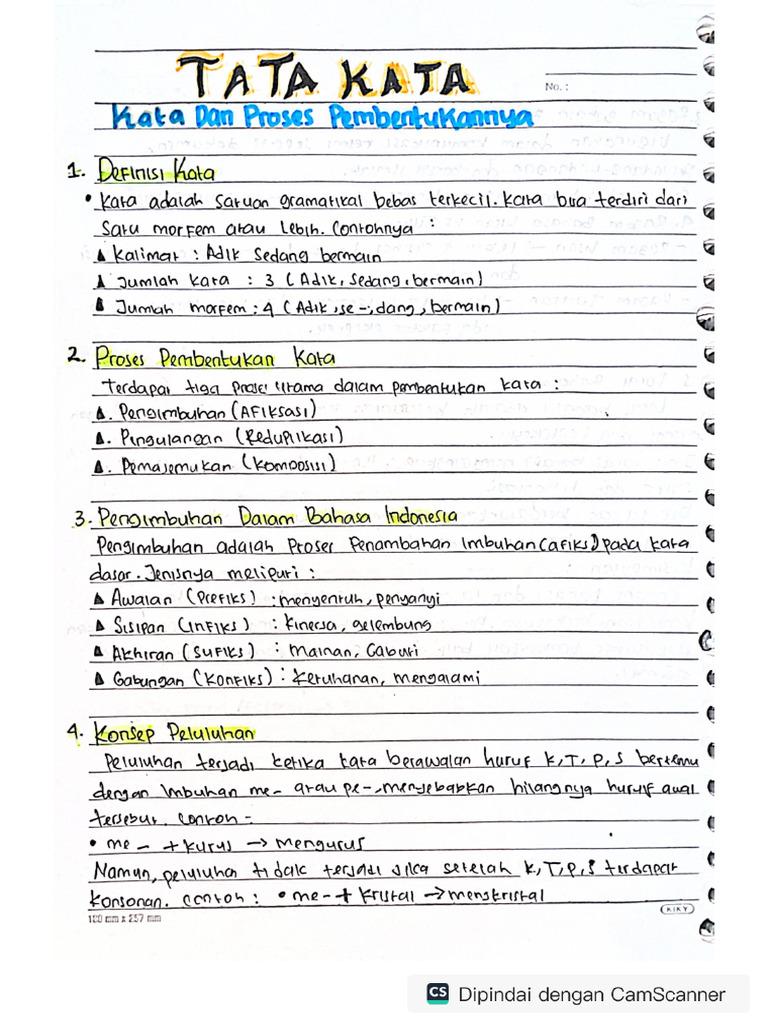 TATA KATA
No. :
Kata Dan Proses Pembentukannya
1. Definisi Kata
• Kata adalah satuan gramatikal bebas terkecil. Kata bisa terdiri dari
satu morfem atau lebih. Contohnya :
Kalimat : Adik sedang bermain
Jumlah kata : 3 (Adik, sedang, bermain)
Jumlah morfem : 4 (Adik, se-, dang, bermain)
2. Proses Pembentukan Kata
Terdapat tiga proses utama dalam pembentukan kata :
Pengimbuhan (Afiksasi)
Pengulangan (Reduplikasi)
Pemajemukan (Komposisi)
3. Pengimbuhan Dalam Bahasa Indonesia
Pengimbuhan adalah Proses Penambahan Imbuhan (afiks) pada kata
dasar. Jenisnya melipuri :
Awalan (Prefiks) : menyentuh, penyanyi
Sisipan (Infiks) : kinerja, gelembung
Akhiran (Sufiks) : mainan, Gaburi
Gabungan (Konfiks) : ketuhanan, mengalami
4. Konsep Peluluhan
Peluluhan terjadi ketika kata berawalan huruf K, T, P, S bertemu
dengan imbuhan me- atau pe-, menyebabkan hilangnya huruf awal
tersebut. contoh -
• me- + kurus → mengurus
Namun, peluluhan tidak terjadi jika setelah K, T, P, S terdapat
konsonan. contoh : • me- + kristal → mengkristal
180 mm x 257 mm
KIKY
CS Dipindai dengan CamScanner